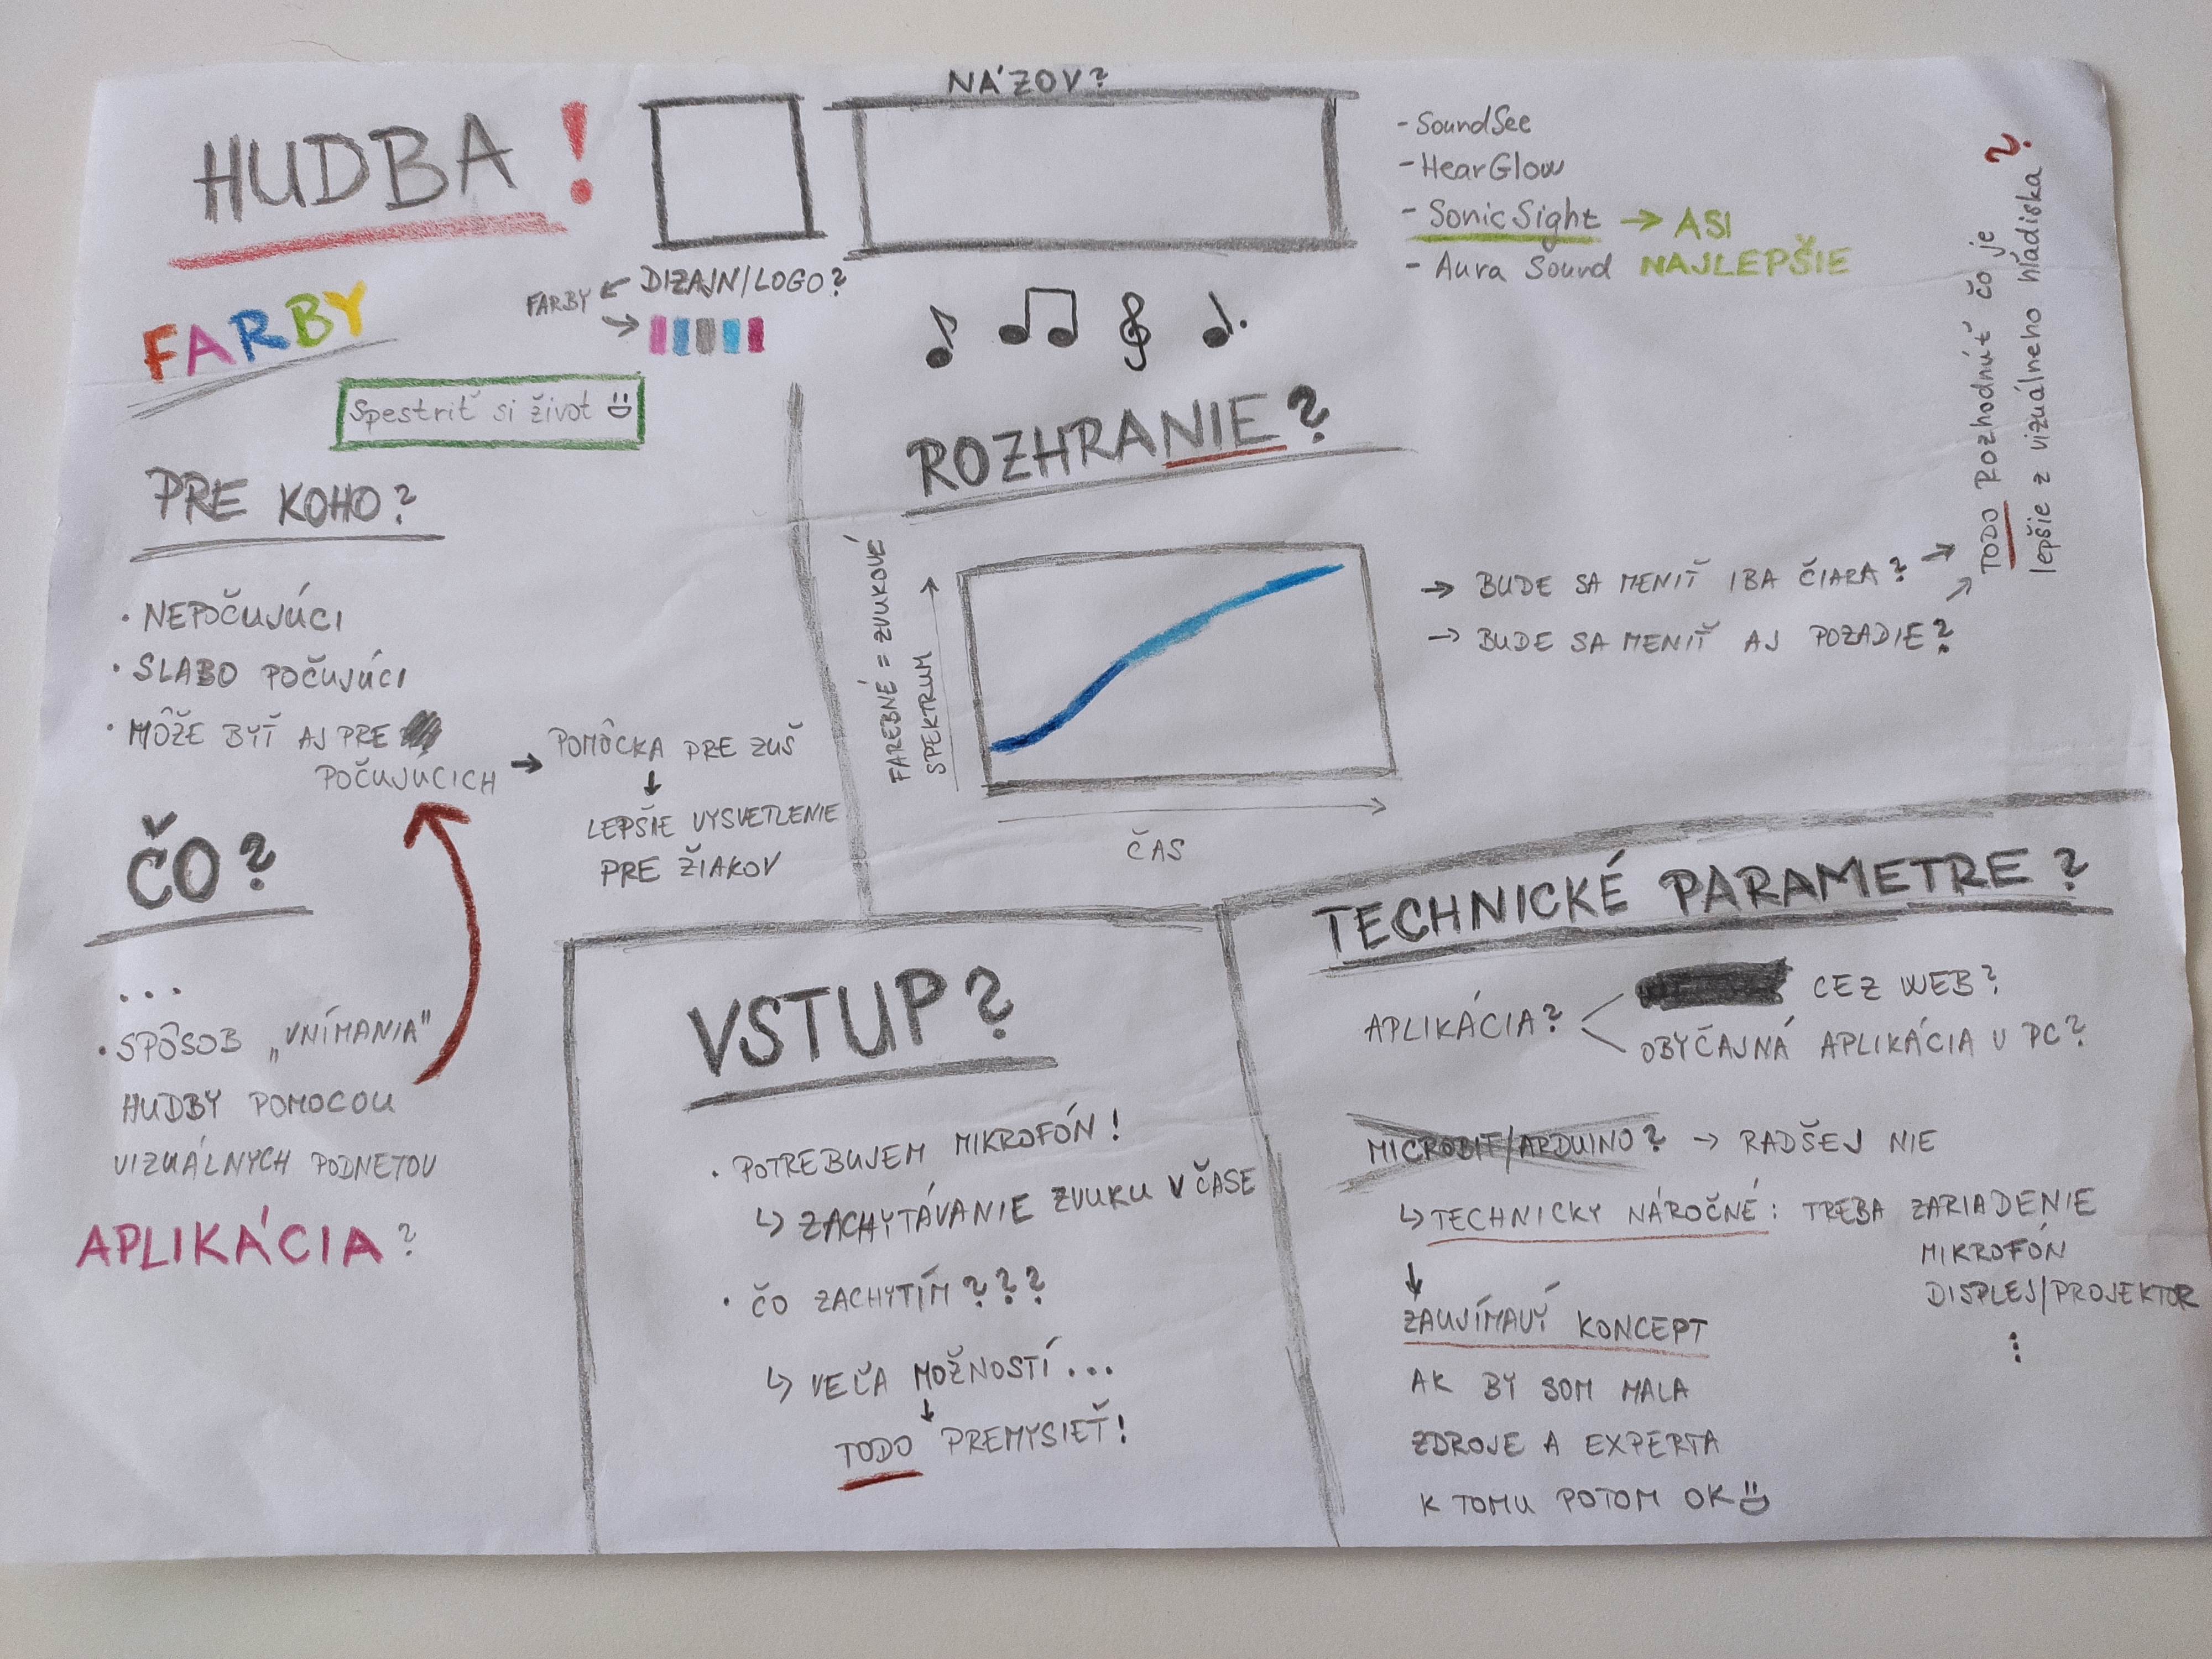 HUDBA!
FARBY
Spestriť si život
PRE KOHO?
· NEPOČUJÚCI
· SLABO POČUJÚCI
· MÔŽE BYŤ AJ PRE
POČUJÚCICH → POMÔCKA PRE ZUŠ
↓
LEPŠIE VYSVETLENIE
PRE ŽIAKOV
ČO?
· SPÔSOB „VNÍMANIA"
HUDBY POMOCOU
VIZUÁLNYCH PODNETOV
APLIKÁCIA?
NÁZOV?
FARBY ← DIZAJN/LOGO?
- SoundSee
- HearGlow
- SonicSight → ASI
NAJLEPŠIE
- Aura Sound
ROZHRANIE?
FAREBNÉ = ZVUKOVÉ
SPEKTRUM
ČAS
→ BUDE SA MENIŤ IBA ČIARA? →
→ BUDE SA MENIŤ AJ POZADIE?
TODO Rozhodnúť čo je
lepšie z vizuálneho hľadiska?
VSTUP?
· POTREBUJEM MIKROFÓN!
↳ ZACHYTÁVANIE ZVUKU V ČASE
· ČO ZACHYTÍM???
↳ VEĽA MOŽNOSTÍ...
↓
TODO PREMYSIEŤ!
TECHNICKÉ PARAMETRE?
APLIKÁCIA?
CEZ WEB?
OBYČAJNÁ APLIKÁCIA V PC?
/ARDUINO? → RADŠEJ NIE
↳ TECHNICKY NÁROČNÉ: TREBA ZARIADENIE
MIKROFÓN
DISPLEJ/PROJEKTOR
↓
ZAUJÍMAVÝ KONCEPT
AK BY SOM MALA
ZDROJE A EXPERTA
K TOMU POTOM OK